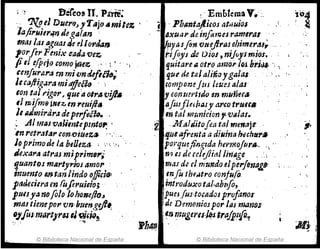 Defcos II. Parte.
No el Duero, y Tajo a mi tez
la firvieran de galan
mas las aguas de el Iordan
por fer Fenix cada vez.
fi el efpejo como juez
cenfurara en mi vn defecto,
le caftigara mi affecto
con tal rigor, que a otra vifta
el mifmo juez en reuifta
le admirara de perfecto.
Al mas valiente pintor
en retratar con viueza
lo primo de la belleza
dexara atras mi primor;
quantos martyrios amor
inuento en tan lindo officio
padeciera en fu feruicio:
pues ya no folo lo honefto,
mas tiene por vn buen gefto
fus martyres el vicio,
Phan
Emblema V. 104
Phantafticos atauios
axuar de infames rameras
fuyas fon vueftras chimeras,
rifoys de Dios, mifoys mios.
quitare a otro amor los brios
que de tal aliño y galas
compone fus leues alas
y conuertido en muñeca
afus flechas y arco trueca
en tal municion y valas.
Maldito fea tal menaje
que afrenta a diuina hechura
porque fingida hermofura
no es de celeftial linage
mas de el mundo el perfonage
en fu theatro confufo
introduxo tal abufo,
pues fus tocados profanos
de Demonios por las manos
en mugeres los trafpufo,